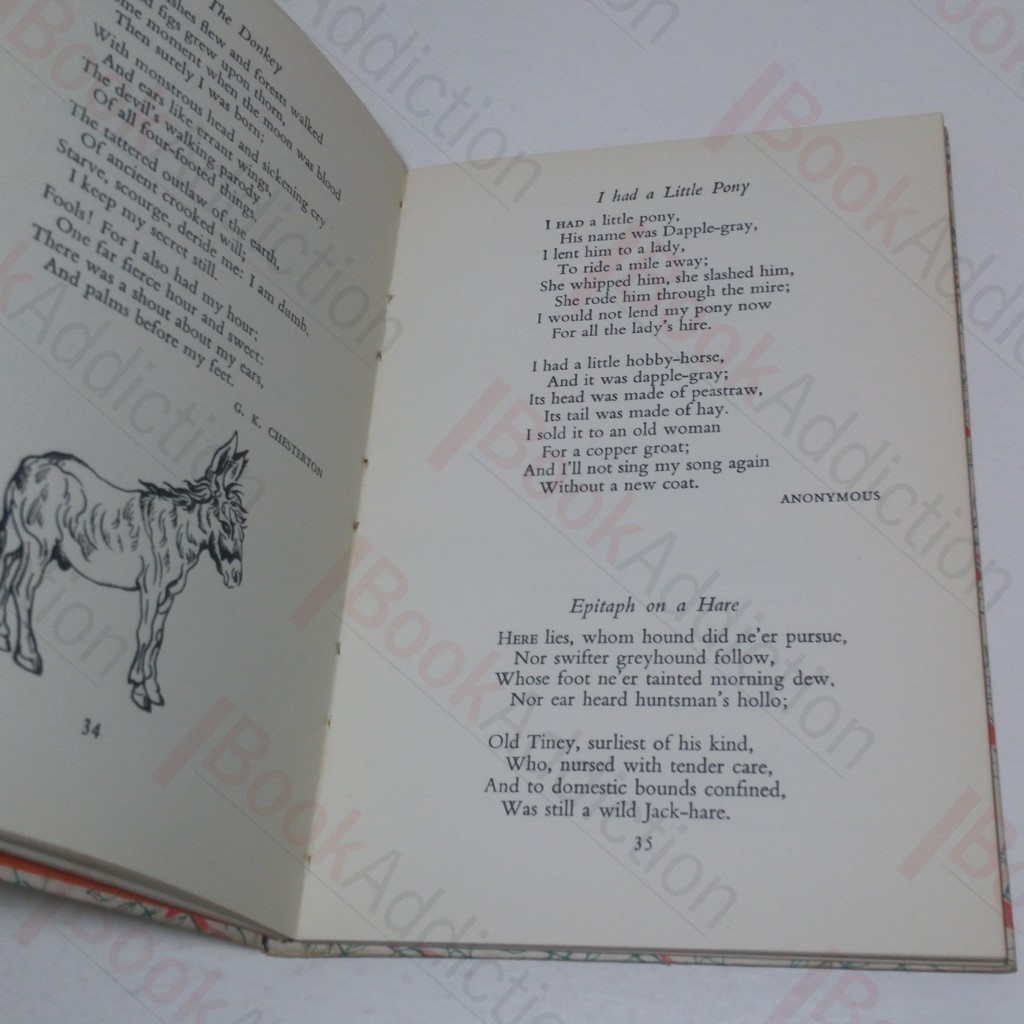 The Donkey
shes flew and forests walked
d figs grew upon thorn,
ome moment when the moon was blood
Then surely I was born;
With monstrous head and sickening cry
And ears like errant wings,
The devil's walking parody
Of all four-footed things.
The tattered outlaw of the earth,
Of ancient crooked will;
Starve, scourge, deride me: I am dumb,
I keep my secret still.
Fools! For I also had my hour;
One far fierce hour and sweet:
There was a shout about my ears,
And palms before my feet.
G. K. CHESTERTON
34
I had a Little Pony
I HAD a little pony,
His name was Dapple-gray,
I lent him to a lady,
To ride a mile away;
She whipped him, she slashed him,
She rode him through the mire;
I would not lend my pony now
For all the lady's hire.
I had a little hobby-horse,
And it was dapple-gray;
Its head was made of peastraw,
Its tail was made of hay.
I sold it to an old woman
For a copper groat;
And I'll not sing my song again
Without a new coat.
ANONYMOUS
Epitaph on a Hare
HERE lies, whom hound did ne'er pursue,
Nor swifter greyhound follow,
Whose foot ne'er tainted morning dew,
Nor ear heard huntsman's hollo;
Old Tiney, surliest of his kind,
Who, nursed with tender care,
And to domestic bounds confined,
Was still a wild Jack-hare.
35
BookAddiction